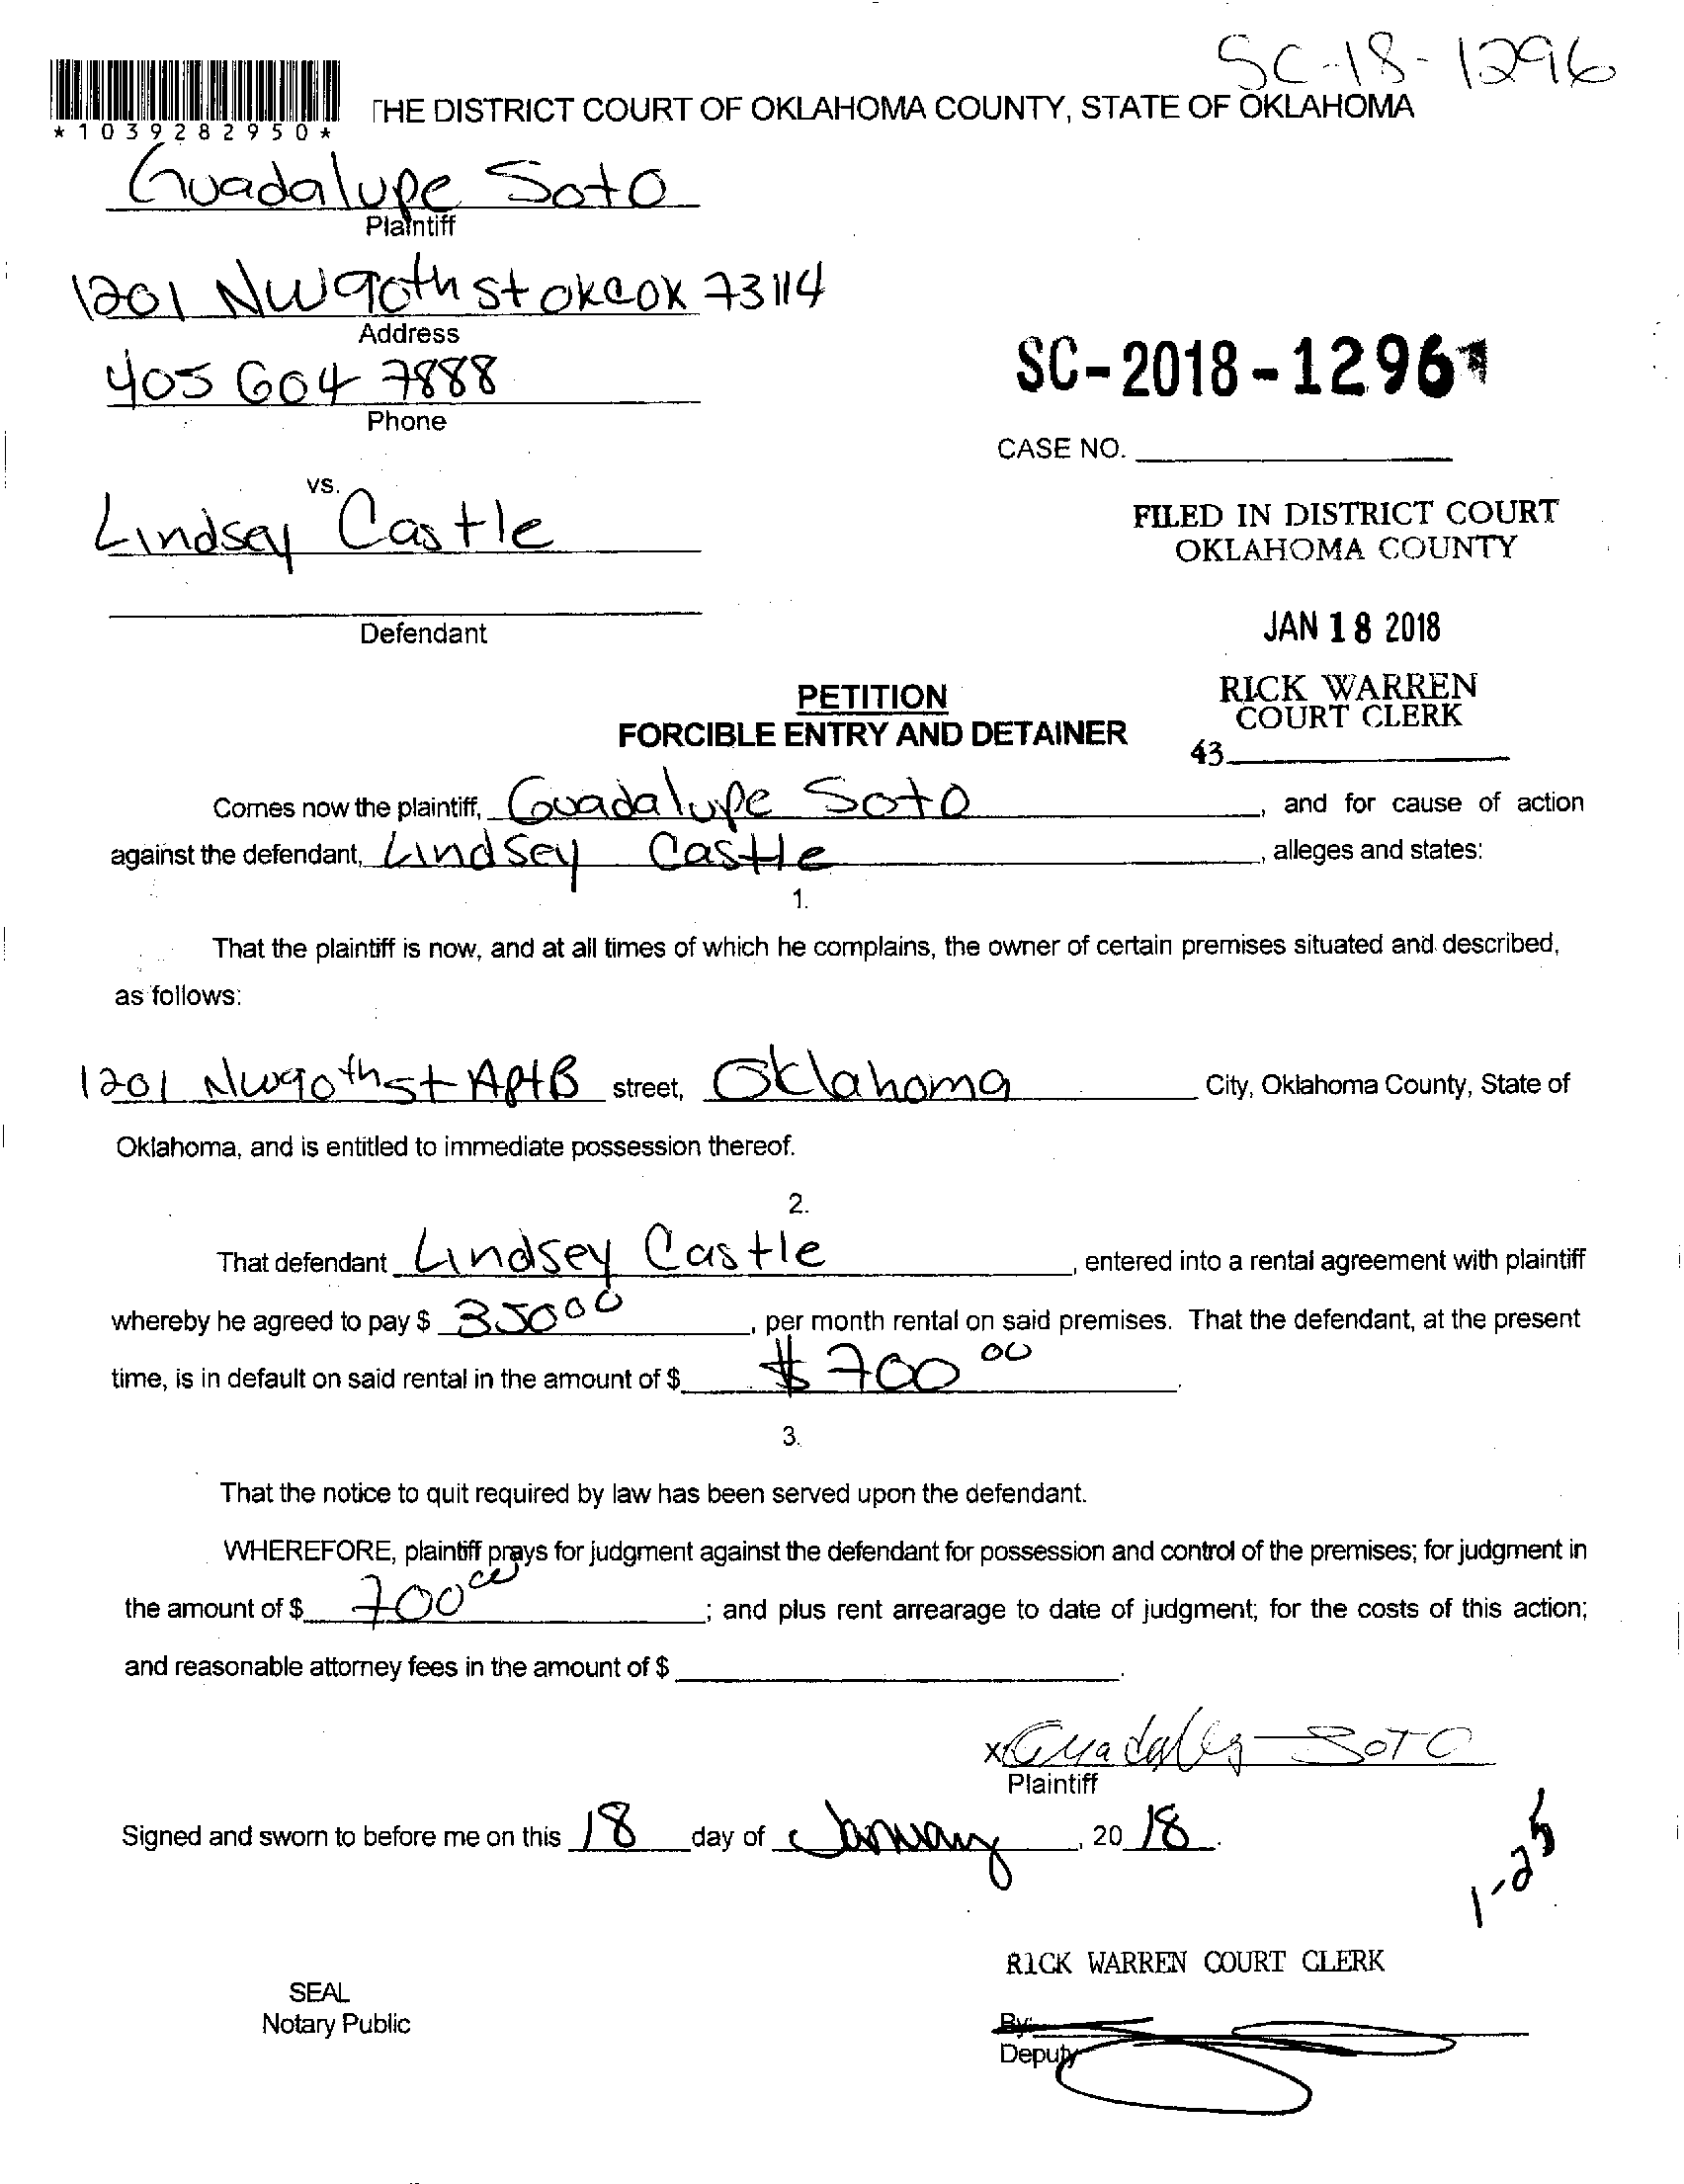 SC-18-1296
*1039282950*
THE DISTRICT COURT OF OKLAHOMA COUNTY, STATE OF OKLAHOMA
Guadalupe Soto
Plaintiff
1201 NW 90th st okc OK 73114
Address
405 604 7888
Phone
SC-2018-1296
CASE NO.
vs.
Lindsey Castle
FILED IN DISTRICT COURT
OKLAHOMA COUNTY
Defendant
JAN 18 2018
PETITION
FORCIBLE ENTRY AND DETAINER
RICK WARREN
COURT CLERK
43
Comes now the plaintiff, Guadalupe Soto, and for cause of action
against the defendant, Lindsey Castle, alleges and states:
1.
That the plaintiff is now, and at all times of which he complains, the owner of certain premises situated and described,
as follows:
1201 Nw 90th st Apt B street, Oklahoma City, Oklahoma County, State of
Oklahoma, and is entitled to immediate possession thereof.
2.
That defendant Lindsey Castle, entered into a rental agreement with plaintiff
whereby he agreed to pay $ 350 00, per month rental on said premises. That the defendant, at the present
time, is in default on said rental in the amount of $ $700 00
3.
That the notice to quit required by law has been served upon the defendant.
WHEREFORE, plaintiff prays for judgment against the defendant for possession and control of the premises; for judgment in
the amount of $ 700 00; and plus rent arrearage to date of judgment; for the costs of this action;
and reasonable attorney fees in the amount of $ .
x Guadalupe SOTO
Plaintiff
Signed and sworn to before me on this 18 day of January, 20 18.
1-25
RICK WARREN COURT CLERK
SEAL
Notary Public
By:
Deputy